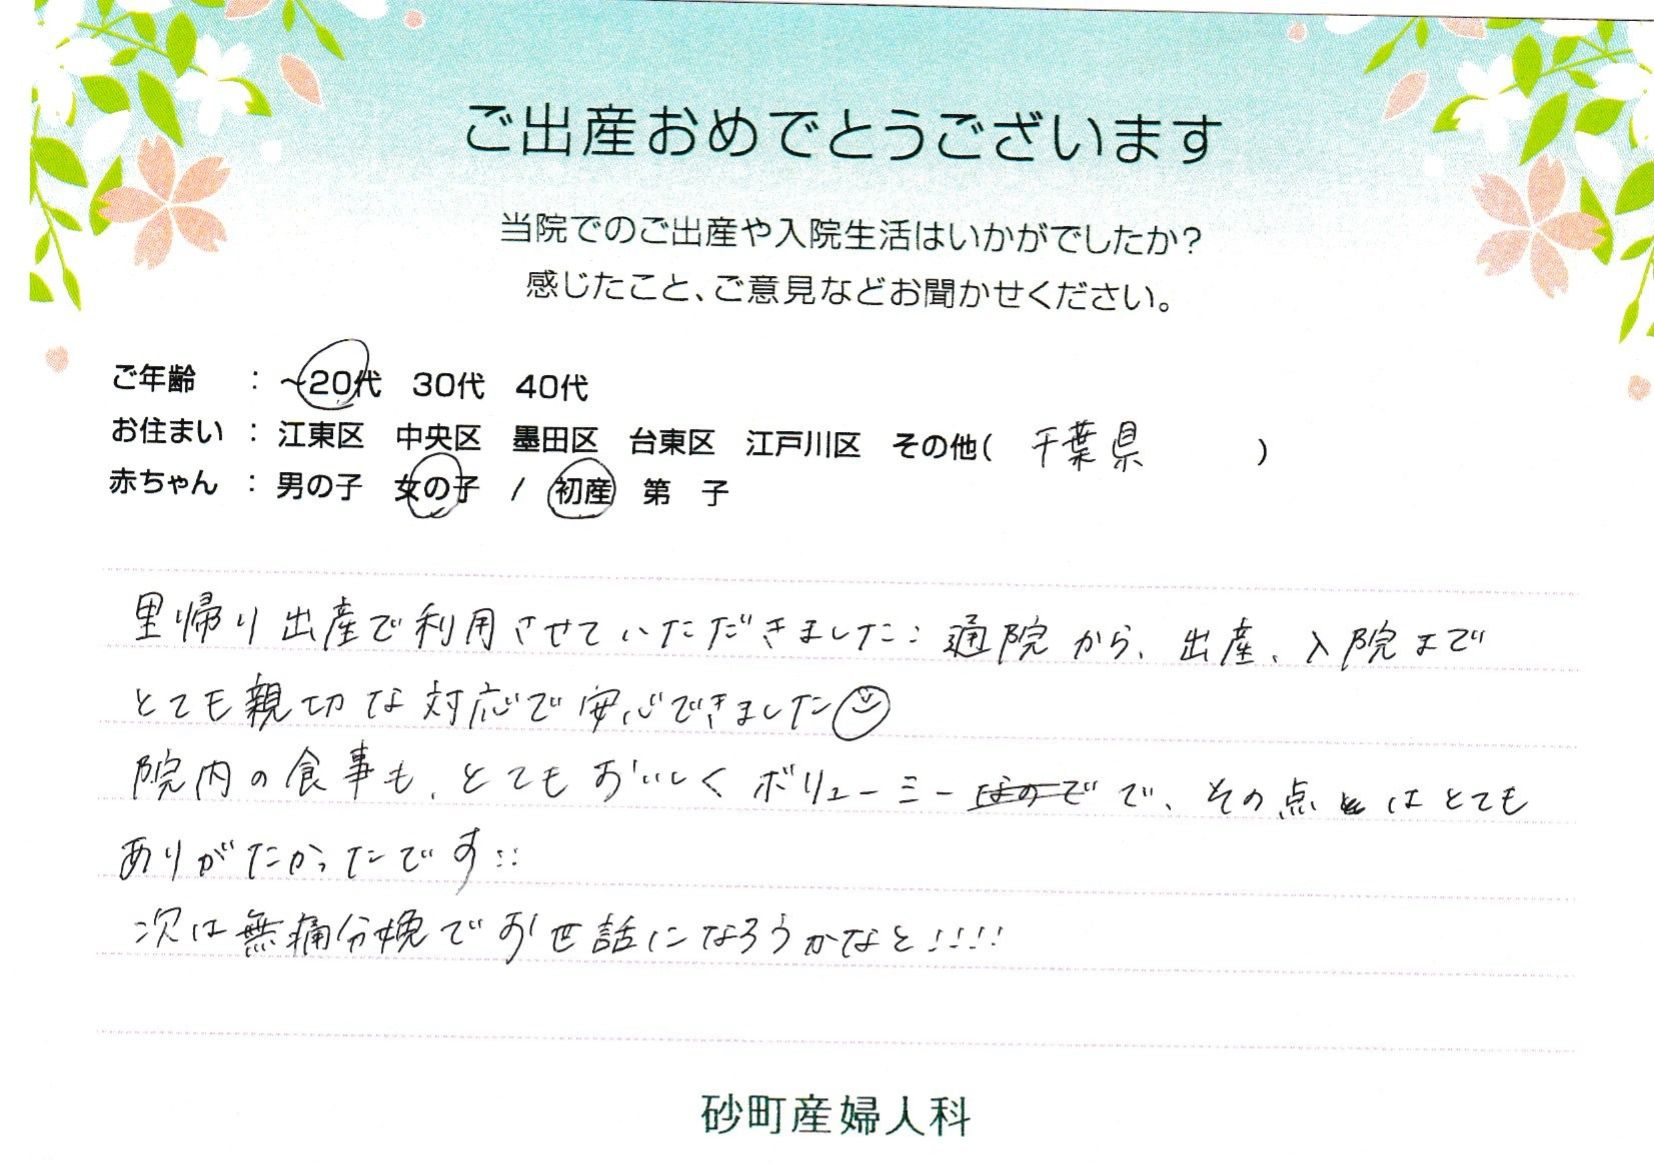 ご出産おめでとうございます
当院でのご出産や入院生活はいかがでしたか?
感じたこと、ご意見などお聞かせください。
ご年齢 : ~20代 30代 40代
お住まい : 江東区 中央区 墨田区 台東区 江戸川区 その他( 千葉県 )
赤ちゃん : 男の子 女の子 / 初産 第 子
里帰り出産で利用させていただきました:通院から、出産、入院まで
とても親切な対応で安心できました
院内の食事も、とてもおいしくボリューミーで、その点はとても
ありがたかったです::
次は無痛分娩でお世話になろうかなと!!!!
砂町産婦人科